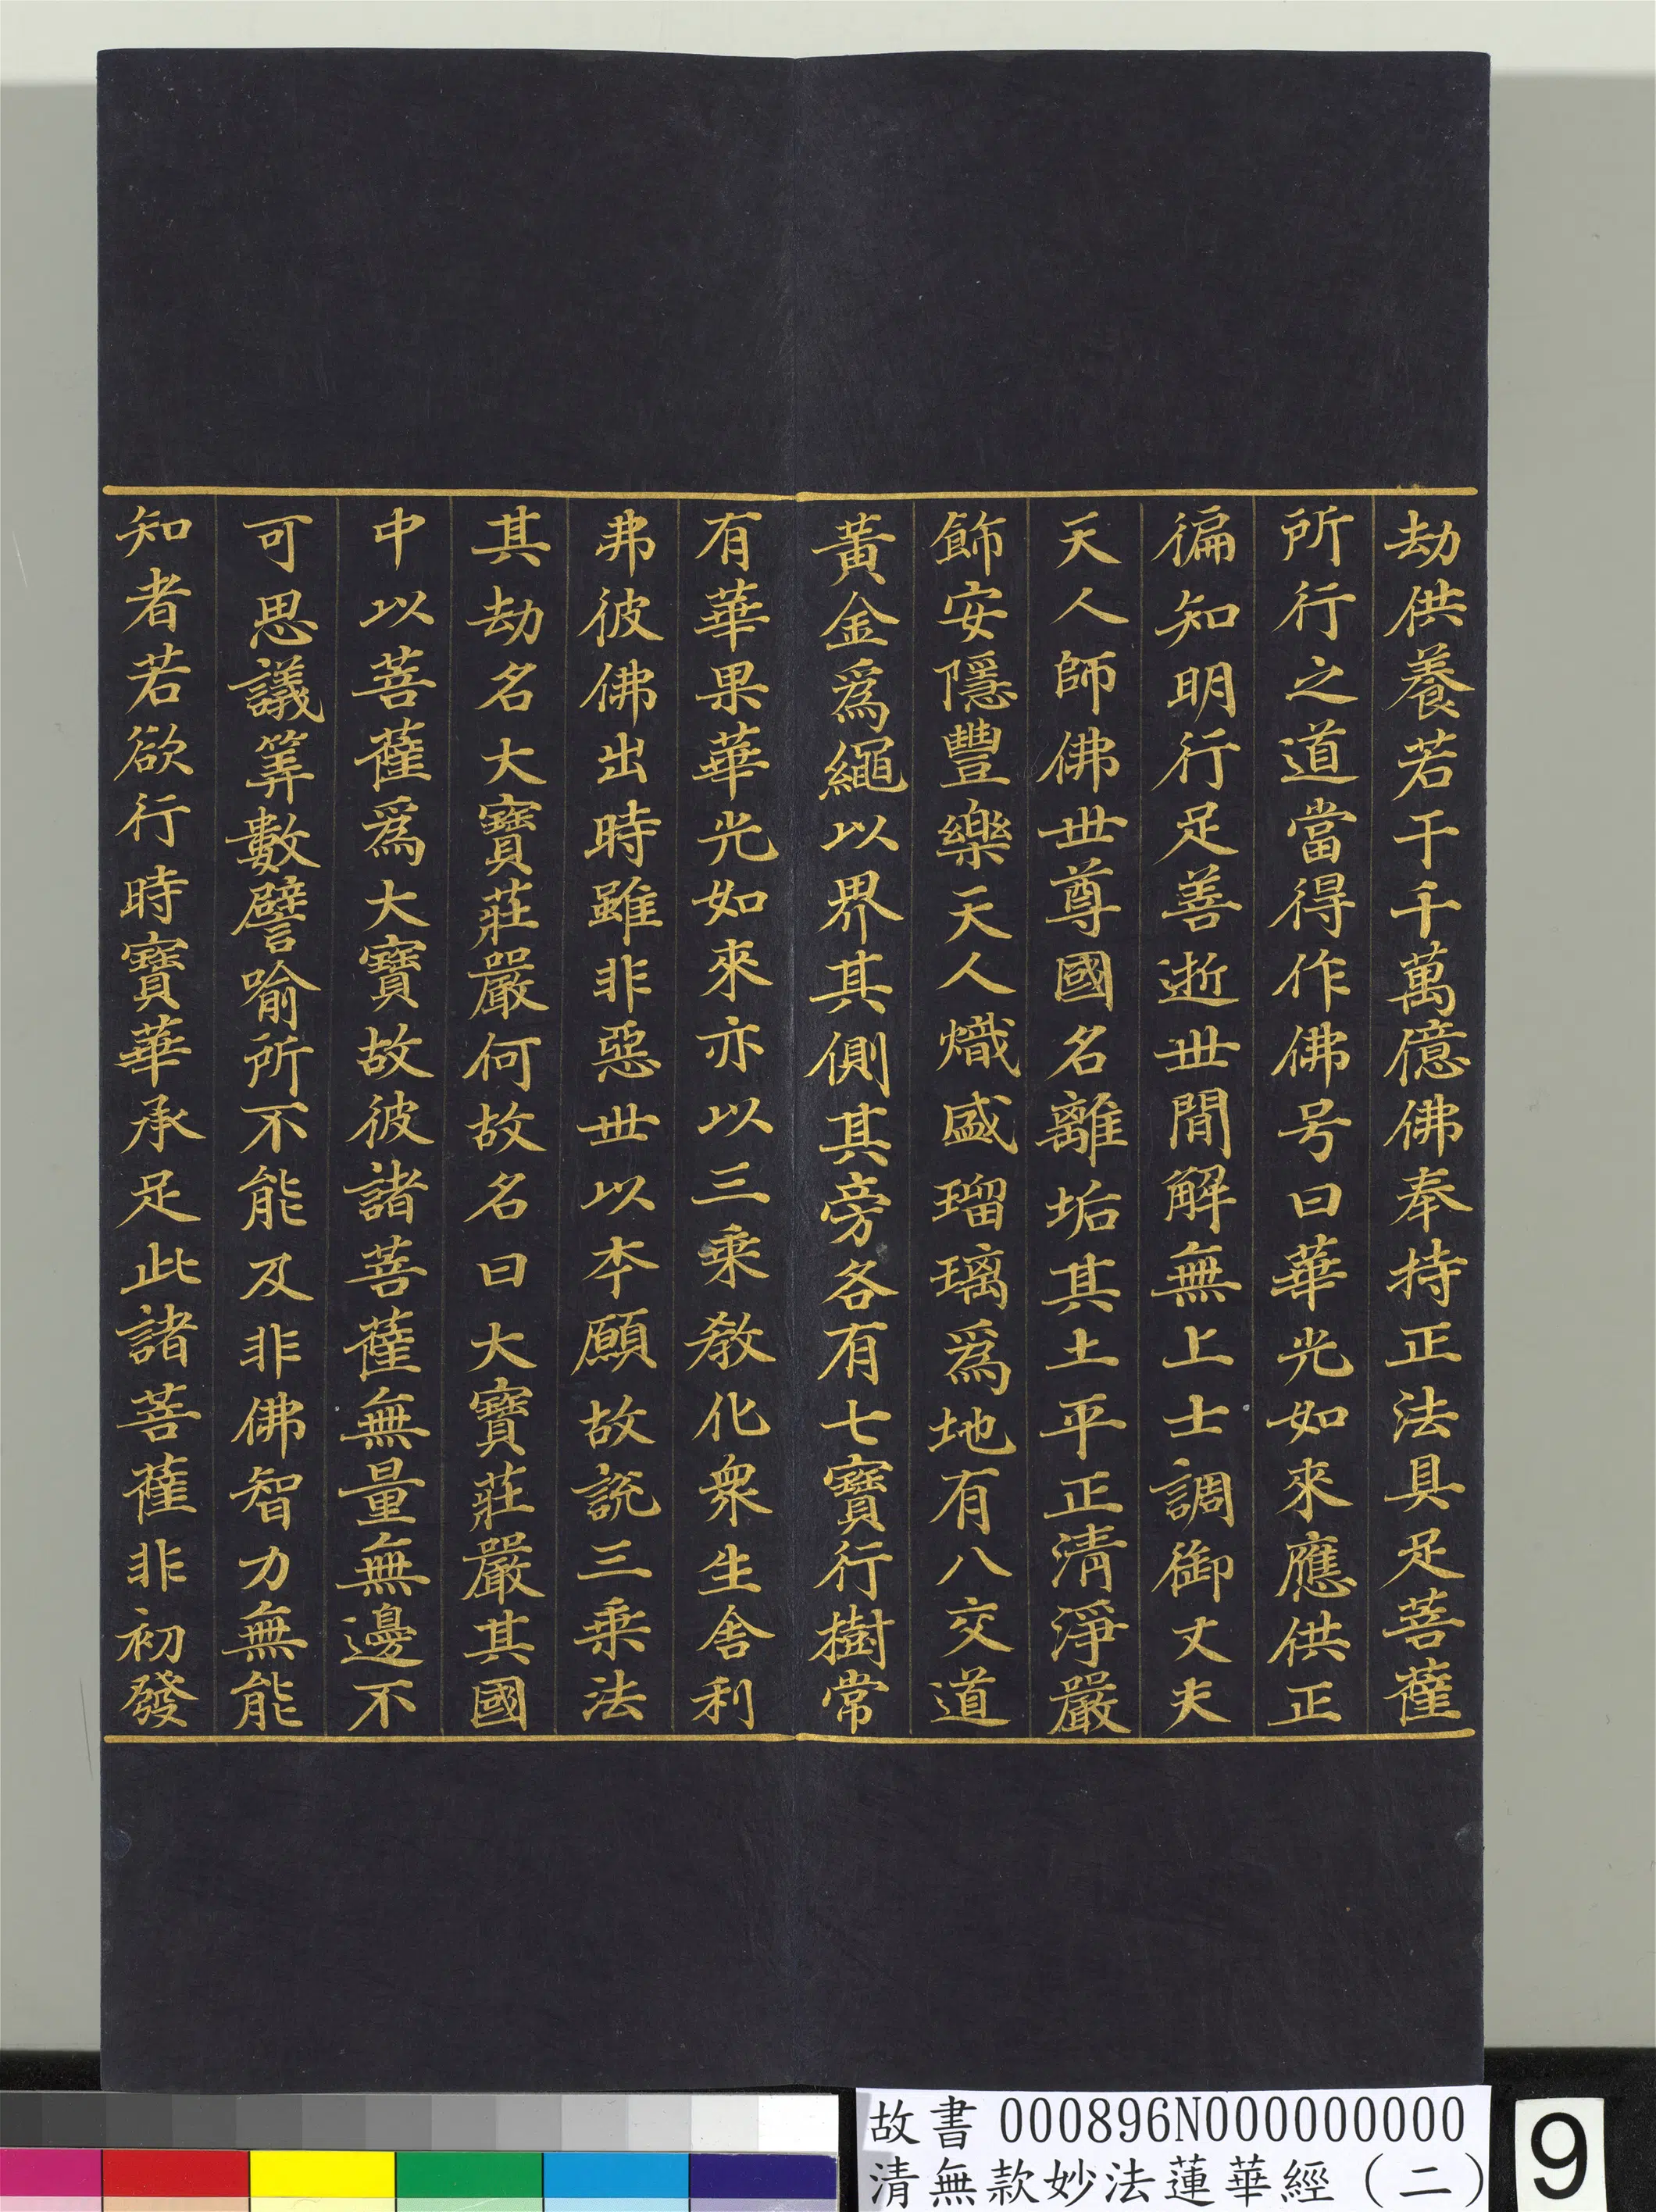 劫供養若干千萬億佛奉持正法具足菩薩
所行之道當得作佛号曰華光如來應供正
徧知明行足善逝世間解無上士調御丈夫
天人師佛世尊國名離垢其土平正清淨嚴
飾安隱豐樂天人熾盛瑠璃為地有八交道
黃金為繩以界其側其旁各有七寶行樹常
有華果華光如來亦以三乘教化眾生舍利
弗彼佛出時雖非惡世以本願故說三乘法
其劫名大寶莊嚴何故名曰大寶莊嚴其國
中以菩薩為大寶故彼諸菩薩無量無邊不
可思議筭數譬喻所不能及非佛智力無能
知者若欲行時寶華承足此諸菩薩非初發
故書 000896N000000000
清無款妙法蓮華經(二)
9